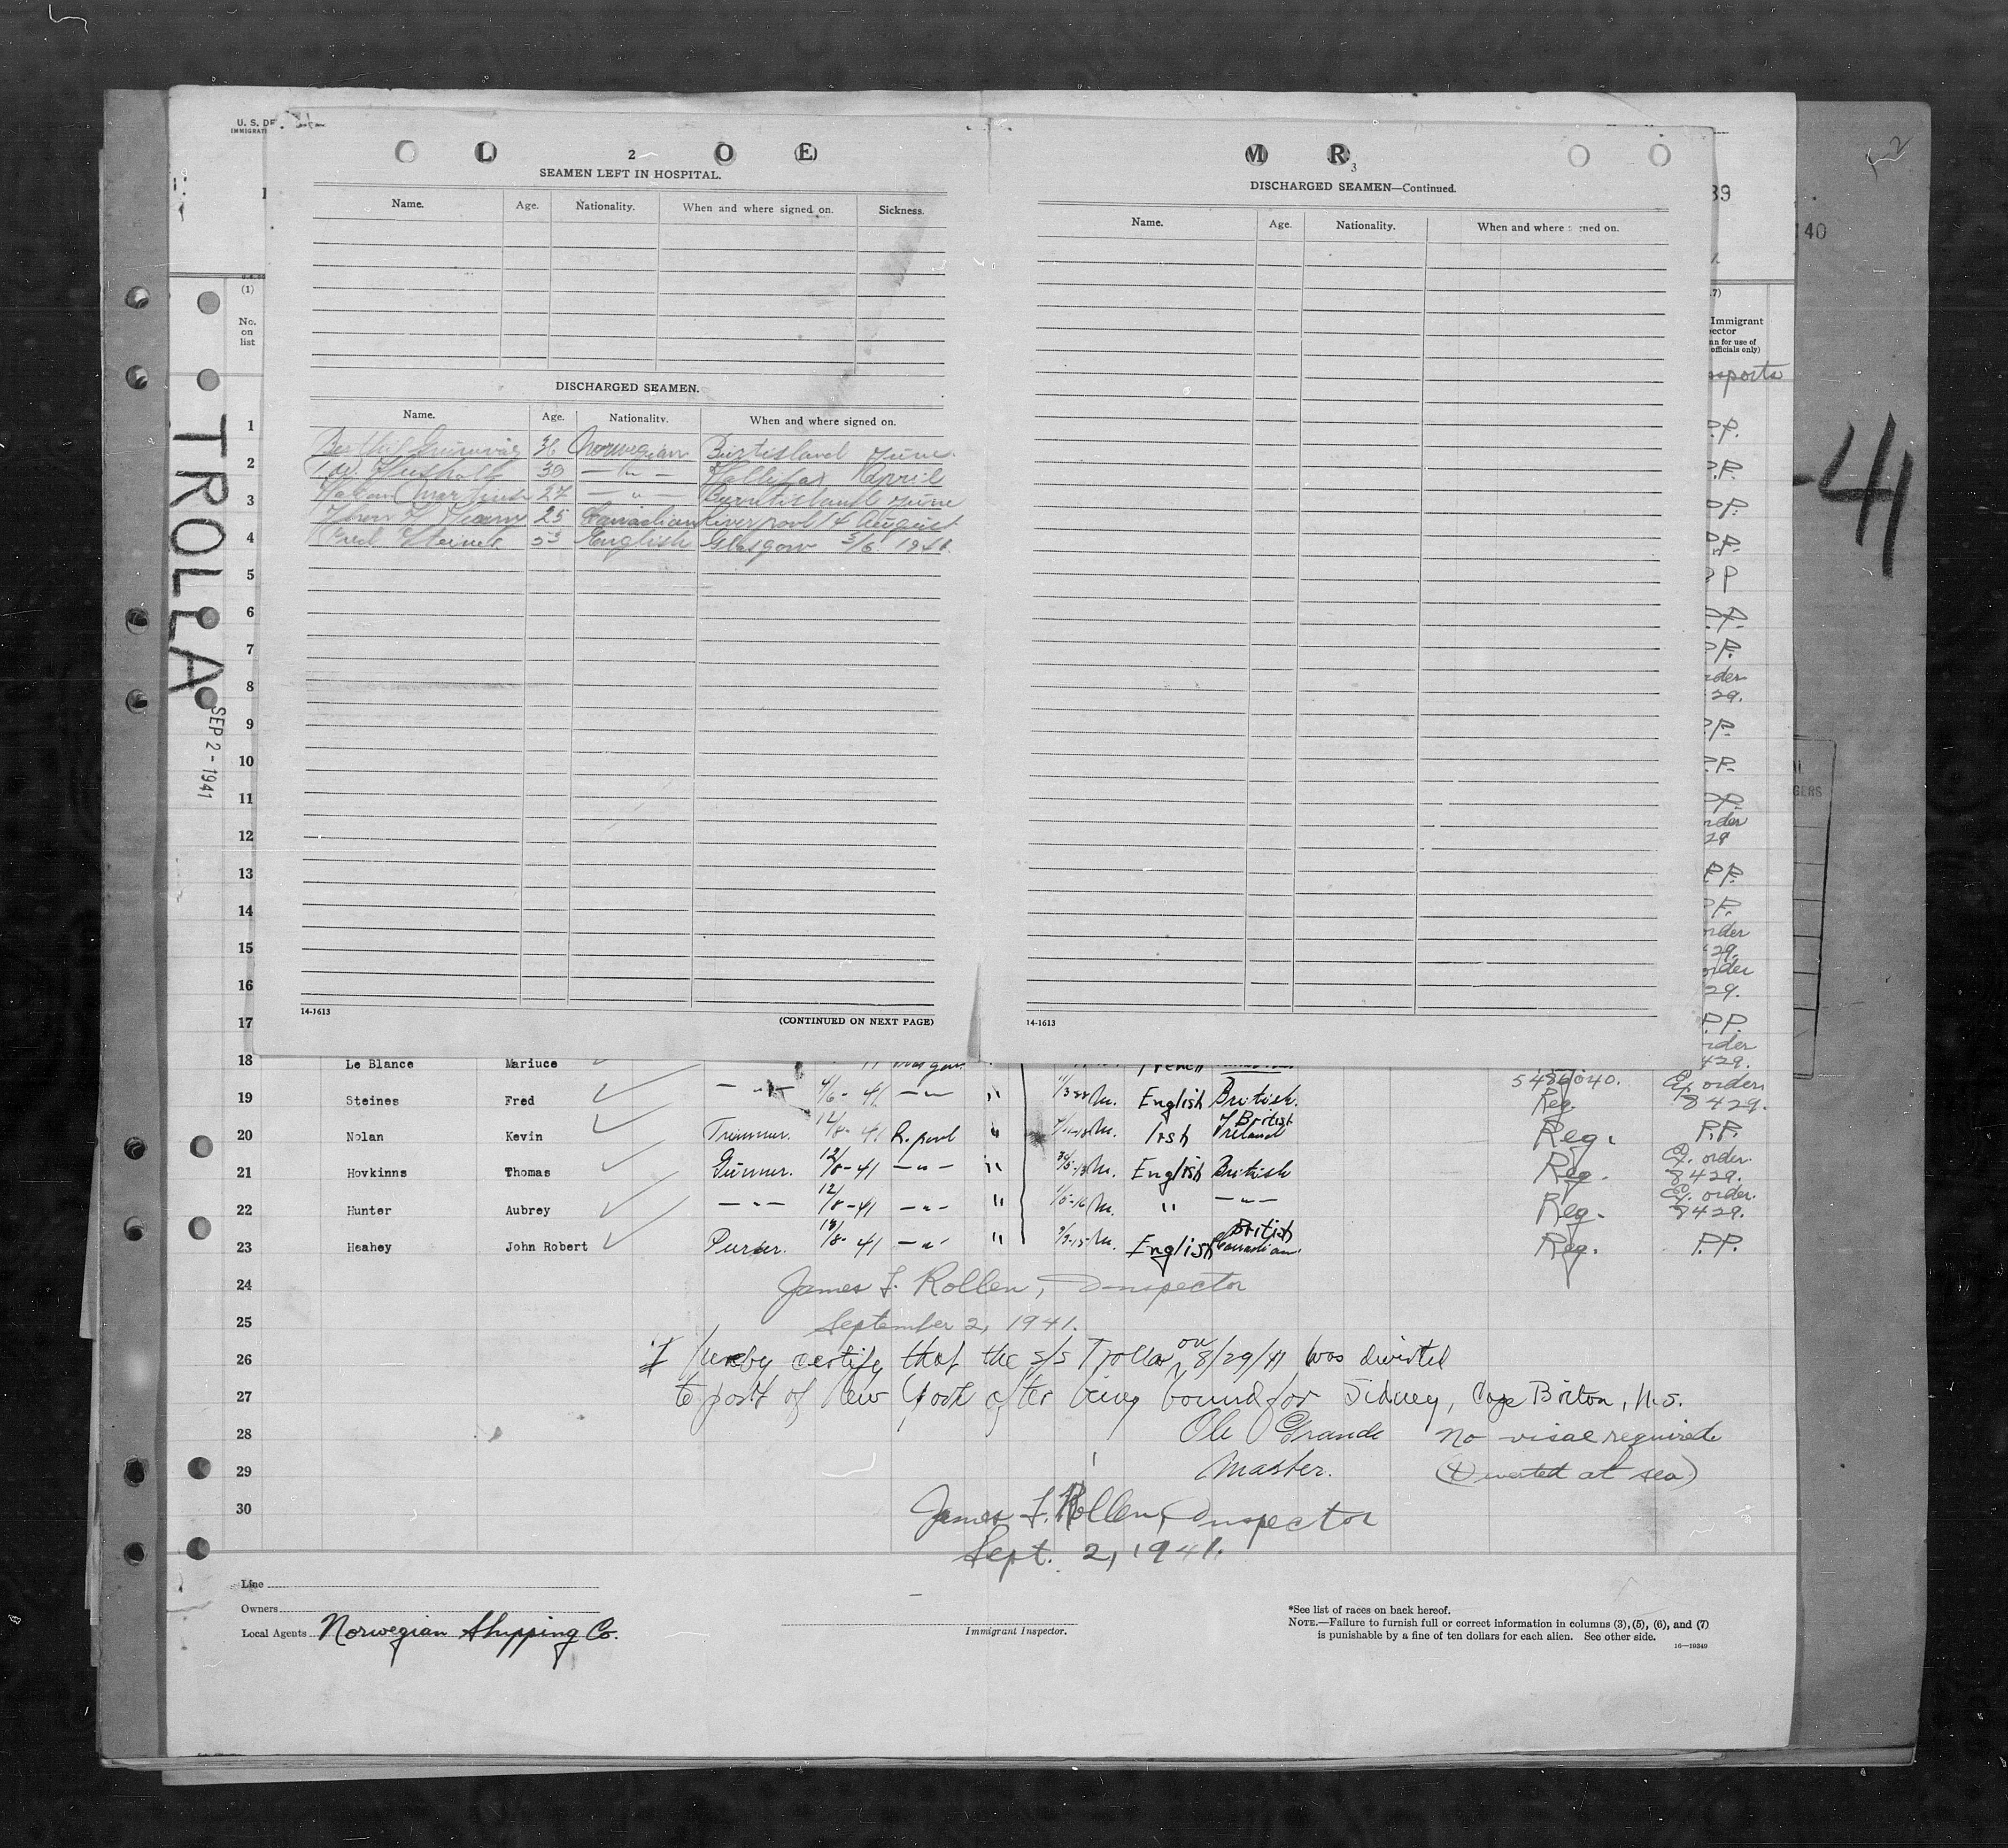 U. S. DE
IMMIGRATI
L O E
2
SEAMEN LEFT IN HOSPITAL.
Name. Age. Nationality. When and where signed on. Sickness.
DISCHARGED SEAMEN.
Name. Age. Nationality. When and where signed on.
36 Norwegian June
39 — " — Hallifax April
27 — " — Burntisland June
25 Canadian Liverpool 14 August
Fred Steines 53 English Glasgow 3/6 1941.
14-1613
(CONTINUED ON NEXT PAGE)
M R
3
DISCHARGED SEAMEN—Continued.
Name. Age. Nationality. When and where signed on.
14-1613
2
39
40
-41
(1)
No.
on
list
7)
Immigrant
ector
an for use of
officials only)
ssports
TROLLA
SEP 2 - 1941
1 P.P.
2 P.P.
3 P.P.
4 P.P.
5 P
6 P.P.
7 P.P.
8 rder
29.
9 P.P.
10 P.P.
11 P.P.
12 rder
29
13 P.P.
14 P.P.
15 order
29.
16 order
29.
17 P.P.
18 Le Blance Mariuce French rder
429.
19 Steines Fred — " — 4/6-41 — " — " English British. 5486040. Reg. Ex. order 8429.
20 Nolan Kevin Trimmer. 12/8-41 L.pool " Irsh British Ireland Reg. P.P.
21 Hovkinns Thomas Gunner. 12/8-41 — " — " English British Reg. Ex. order 8429.
22 Hunter Aubrey — " — 12/8-41 — " — " " — " — Reg. Ex. order 8429.
23 Heahey John Robert 8-41 — " — " English British Canadian. Reg. P.P.
24 James F. Rollen, Inspector
25 September 2, 1941.
26 I hereby certify that the s/s Trolla on 8/29/41 was diverted
27 to port of New York after being bound for Sidney, Cape Briton, N.S.
28 Ole Grande No visae required
29 Master. (Diverted at sea)
30 James F. Rollen, Inspector
Sept. 2, 1941.
Line
Owners
Local Agents Norwegian Shipping Co.
Immigrant Inspector.
*See list of races on back hereof.
NOTE.—Failure to furnish full or correct information in columns (3), (5), (6), and (7)
is punishable by a fine of ten dollars for each alien. See other side.
16—19349